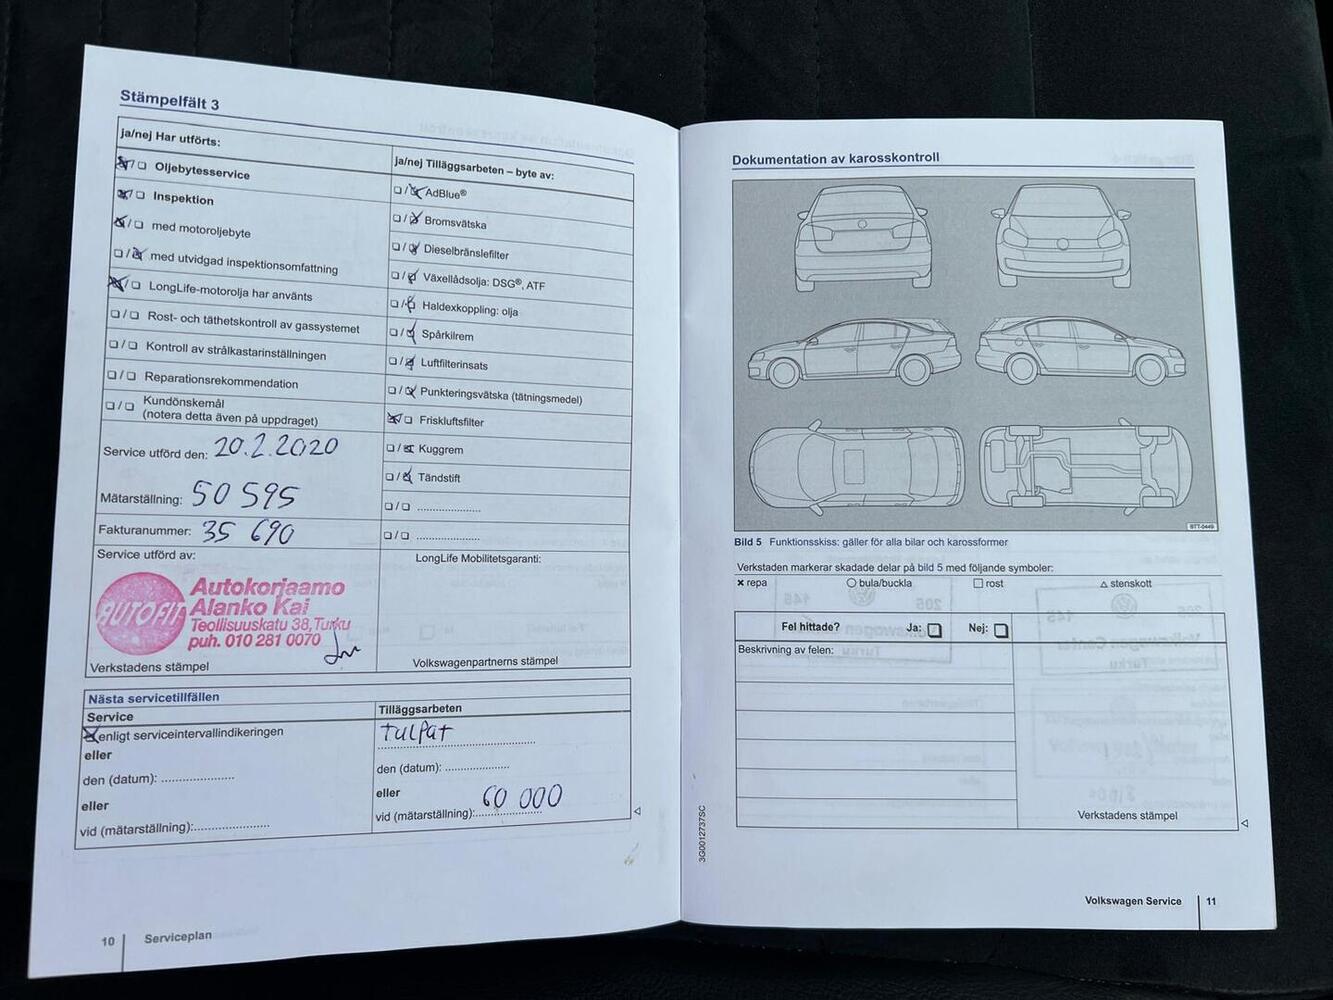 Stämpelfält 3
ja/nej Har utförts:
Oljebytesservice
Inspektion
med motoroljebyte
med utvidgad inspektionsomfattning
LongLife-motorolja har använts
Rost- och täthetskontroll av gassystemet
Kontroll av strålkastarinställningen
Reparationsrekommendation
Kundönskemål
(notera detta även på uppdraget)
Service utförd den: 20.2.2020
Mätarställning: 50 595
Fakturanummer: 35 690
Service utförd av:
AUTOFIT
Autokorjaamo
Alanko Kai
Teollisuuskatu 38, Turku
puh. 010 281 0070
Verkstadens stämpel
ja/nej Tilläggsarbeten – byte av:
AdBlue®
Bromsvätska
Dieselbränslefilter
Växellådsolja: DSG®, ATF
Haldexkoppling: olja
Spårkilrem
Luftfilterinsats
Punkteringsvätska (tätningsmedel)
Friskluftsfilter
Kuggrem
Tändstift
LongLife Mobilitetsgaranti:
Volkswagenpartnerns stämpel
Nästa servicetillfällen
Service
enligt serviceintervallindikeringen
eller
den (datum):
eller
vid (mätarställning):
Tilläggsarbeten
tulpat
den (datum):
eller
vid (mätarställning): 60 000
10 Serviceplan
Dokumentation av karosskontroll
BTT-0449
Bild 5 Funktionsskiss: gäller för alla bilar och karossformer
Verkstaden markerar skadade delar på bild 5 med följande symboler:
× repa ○ bula/buckla □ rost △ stenskott
Fel hittade? Ja: Nej:
Beskrivning av felen:
Verkstadens stämpel
3G0012737SC
Volkswagen Service 11